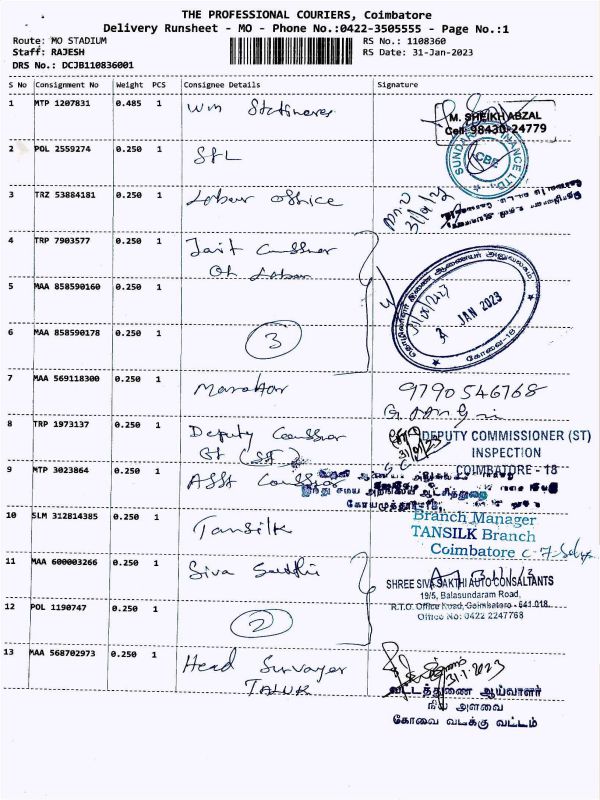 THE PROFESSIONAL COURIERS, Coimbatore
Delivery Runsheet - MO - Phone No.:0422-3505555 - Page No.:1
Route: MO STADIUM
RS No.: 1108360
Staff: RAJESH
RS Date: 31-Jan-2023
DRS No.: DCJB110836001
S No Consignment No Weight PCS Consignee Details Signature
1 MTP 1207831 0.485 1 Wm Stationares
M. SHEIKH ABZAL
Cell: 98430-24779
2 POL 2559274 0.250 1 StL
SUNDARAM FINANCE LTD.
CBE
3 TRZ 53884181 0.250 1 Labour office
31/01/23
4 TRP 7903577 0.250 1 Joit
Of Labour
தொழிலாளர் இணை ஆணையர் அலுவலகம்
31/01/2023
31 JAN 2023
கோவை-18
5 MAA 858590160 0.250 1
6 MAA 858590178 0.250 1 3
7 MAA 569118300 0.250 1 Manohar
9790546768
8 TRP 1973137 0.250 1 Deputy
Of (ST)
DEPUTY COMMISSIONER (ST)
INSPECTION
COIMBATORE - 18
9 MTP 3023864 0.250 1 Asst
இந்து சமய அறநிலைய ஆட்சித்துறை
கோயமுத்தூர்
10 SLM 312814385 0.250 1 Tansilk
Branch Manager
TANSILK Branch
Coimbatore
11 MAA 600003266 0.250 1 Siva Sakthi
SHREE SIVA SAKTHI AUTO CONSULTANTS
19/5, Balasundaram Road,
R.T.O. Office Road, Coimbatore - 641 018.
Office No: 0422 2247768
12 POL 1190747 0.250 1 2
13 MAA 568702973 0.250 1 Head Survayer
TALUK
31.1.2023
வட்டத்துணை ஆய்வாளர்
நில அளவை
கோவை வடக்கு வட்டம்